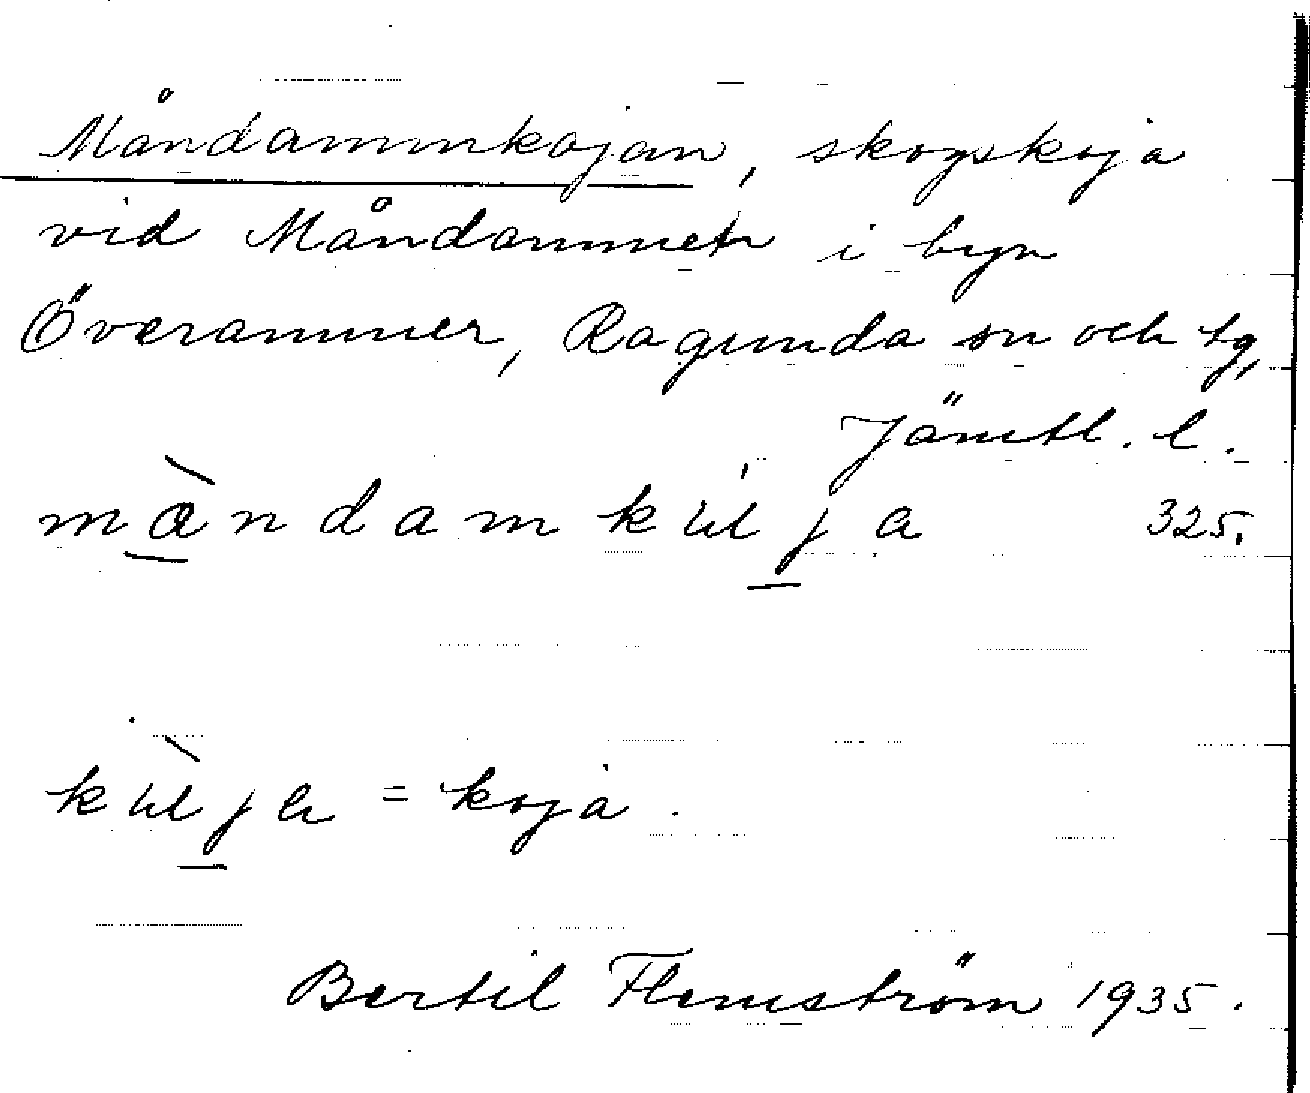 Måndammkojan, skogskoja
vid Måndammen i byn
Överammer, Ragunda sn och tg,
Jämtl. l.
màndam 325.
= koja.
Bertil Flemström 1935.